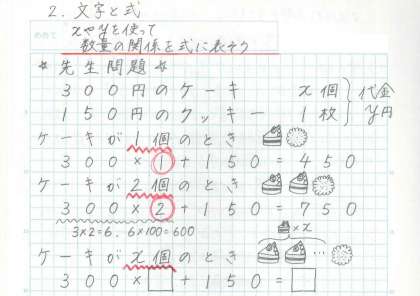 2. 文字と式
xやyを使って
数量の関係を式に表そう
☆先生問題☆
300円のケーキ x個
150円のクッキー 1枚
代金 y円
ケーキが1個のとき
300×1+150=450
ケーキが2個のとき
300×2+150=750
3×2=6. 6×100=600
×x
ケーキがx個のとき
…
300×□+150=□